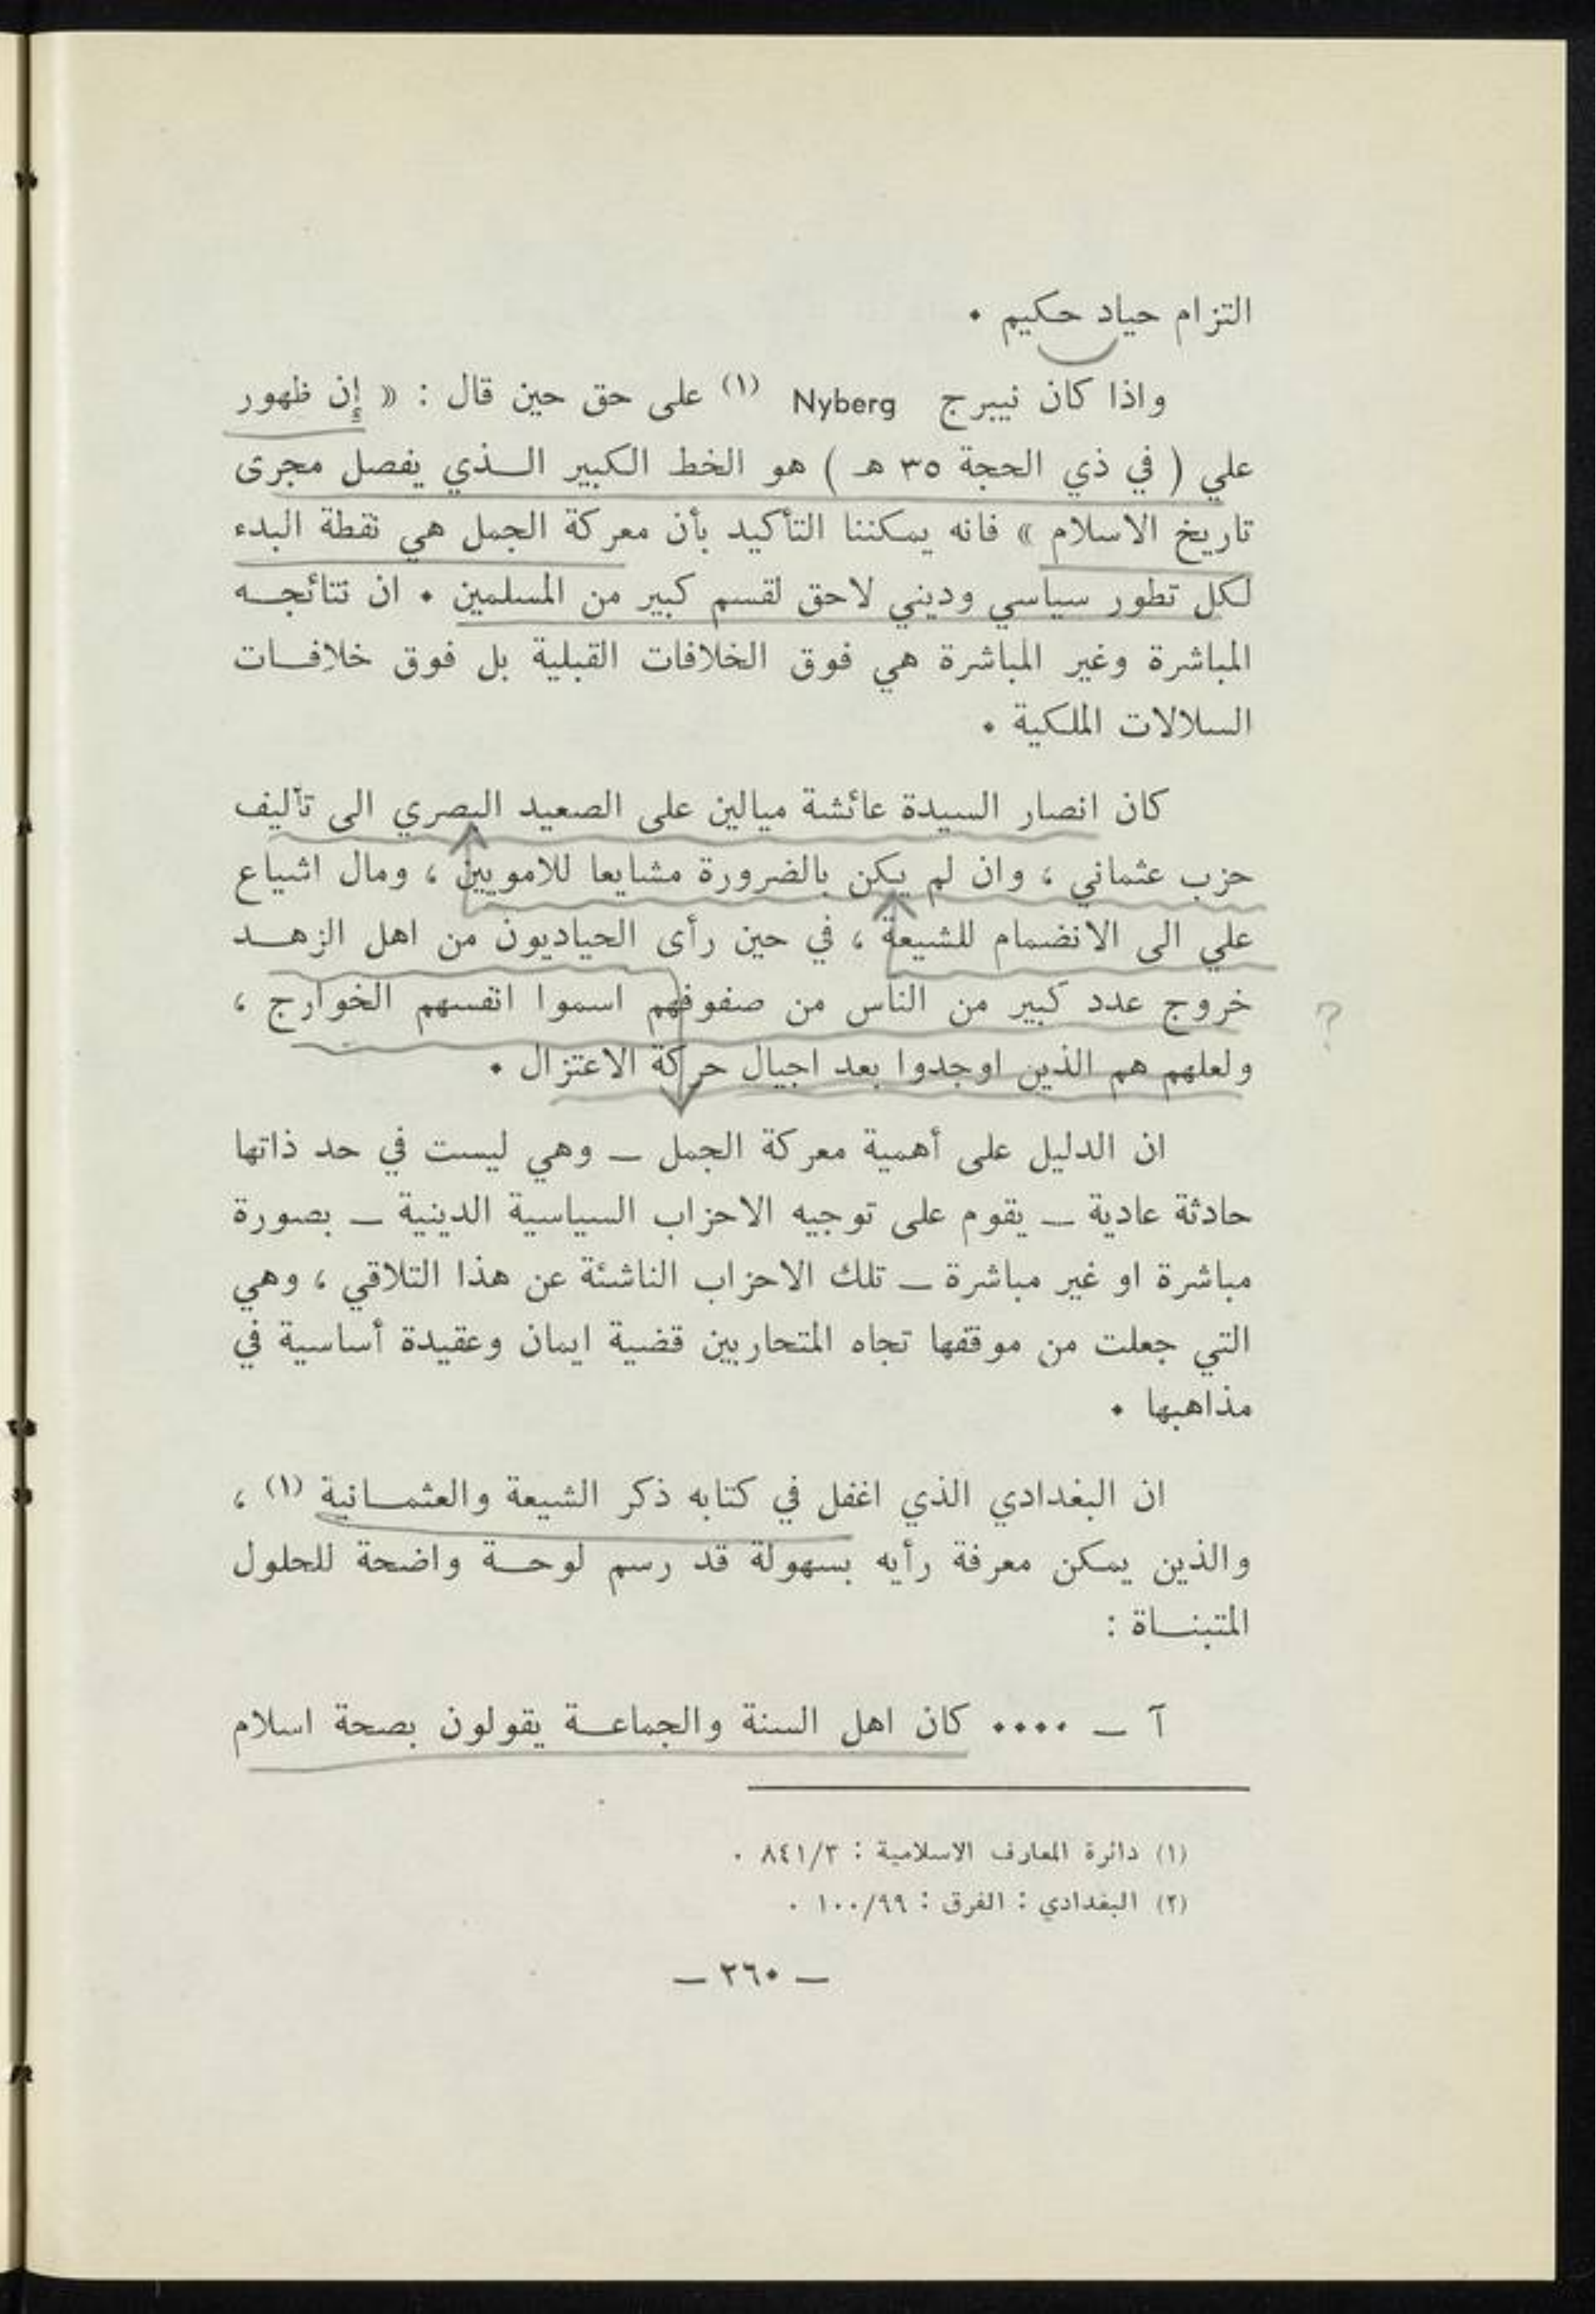 التزام حياد حكيم ٠
واذا كان نيبرج Nyberg (١) على حق حين قال : « إن ظهور
علي ( في ذي الحجة ٣٥ هـ ) هو الخط الكبير الـذي يفصل مجرى
تاريخ الاسلام » فانه يمكننا التأكيد بأن معركة الجمل هي نقطة البدء
لكل تطور سياسي وديني لاحق لقسم كبير من المسلمين ٠ ان نتائجـه
المباشرة وغير المباشرة هي فوق الخلافات القبلية بل فوق خلافـات
السلالات الملكية ٠
كان انصار السيدة عائشة ميالين على الصعيد البصري الى تأليف
حزب عثماني ، وان لم يكن بالضرورة مشايعا للامويين ، ومال اشياع
علي الى الانضمام للشيعة ، في حين رأى الحياديون من اهل الزهـد
خروج عدد كبير من الناس من صفوفهم اسموا انفسهم الخوارج ،
ولعلهم هم الذين اوجدوا بعد اجيال حركة الاعتزال ٠
?
ان الدليل على أهمية معركة الجمل ــ وهي ليست في حد ذاتها
حادثة عادية ــ يقوم على توجيه الاحزاب السياسية الدينية ــ بصورة
مباشرة او غير مباشرة ــ تلك الاحزاب الناشئة عن هذا التلاقي ، وهي
التي جعلت من موقفها تجاه المتحاربين قضية ايمان وعقيدة أساسية في
مذاهبها ٠
ان البغدادي الذي اغفل في كتابه ذكر الشيعة والعثمـانية (١) ،
والذين يمكن معرفة رأيه بسهولة قد رسم لوحـة واضحة للحلول
المتبنـاة :
آ ــ ٠٠٠٠ كان اهل السنة والجماعـة يقولون بصحة اسلام
(١) دائرة المعارف الاسلامية : ٨٤١/٣ .
(٢) البغدادي : الفرق : ١٠٠/٩٩ .
ــ ٢٦٠ ــ